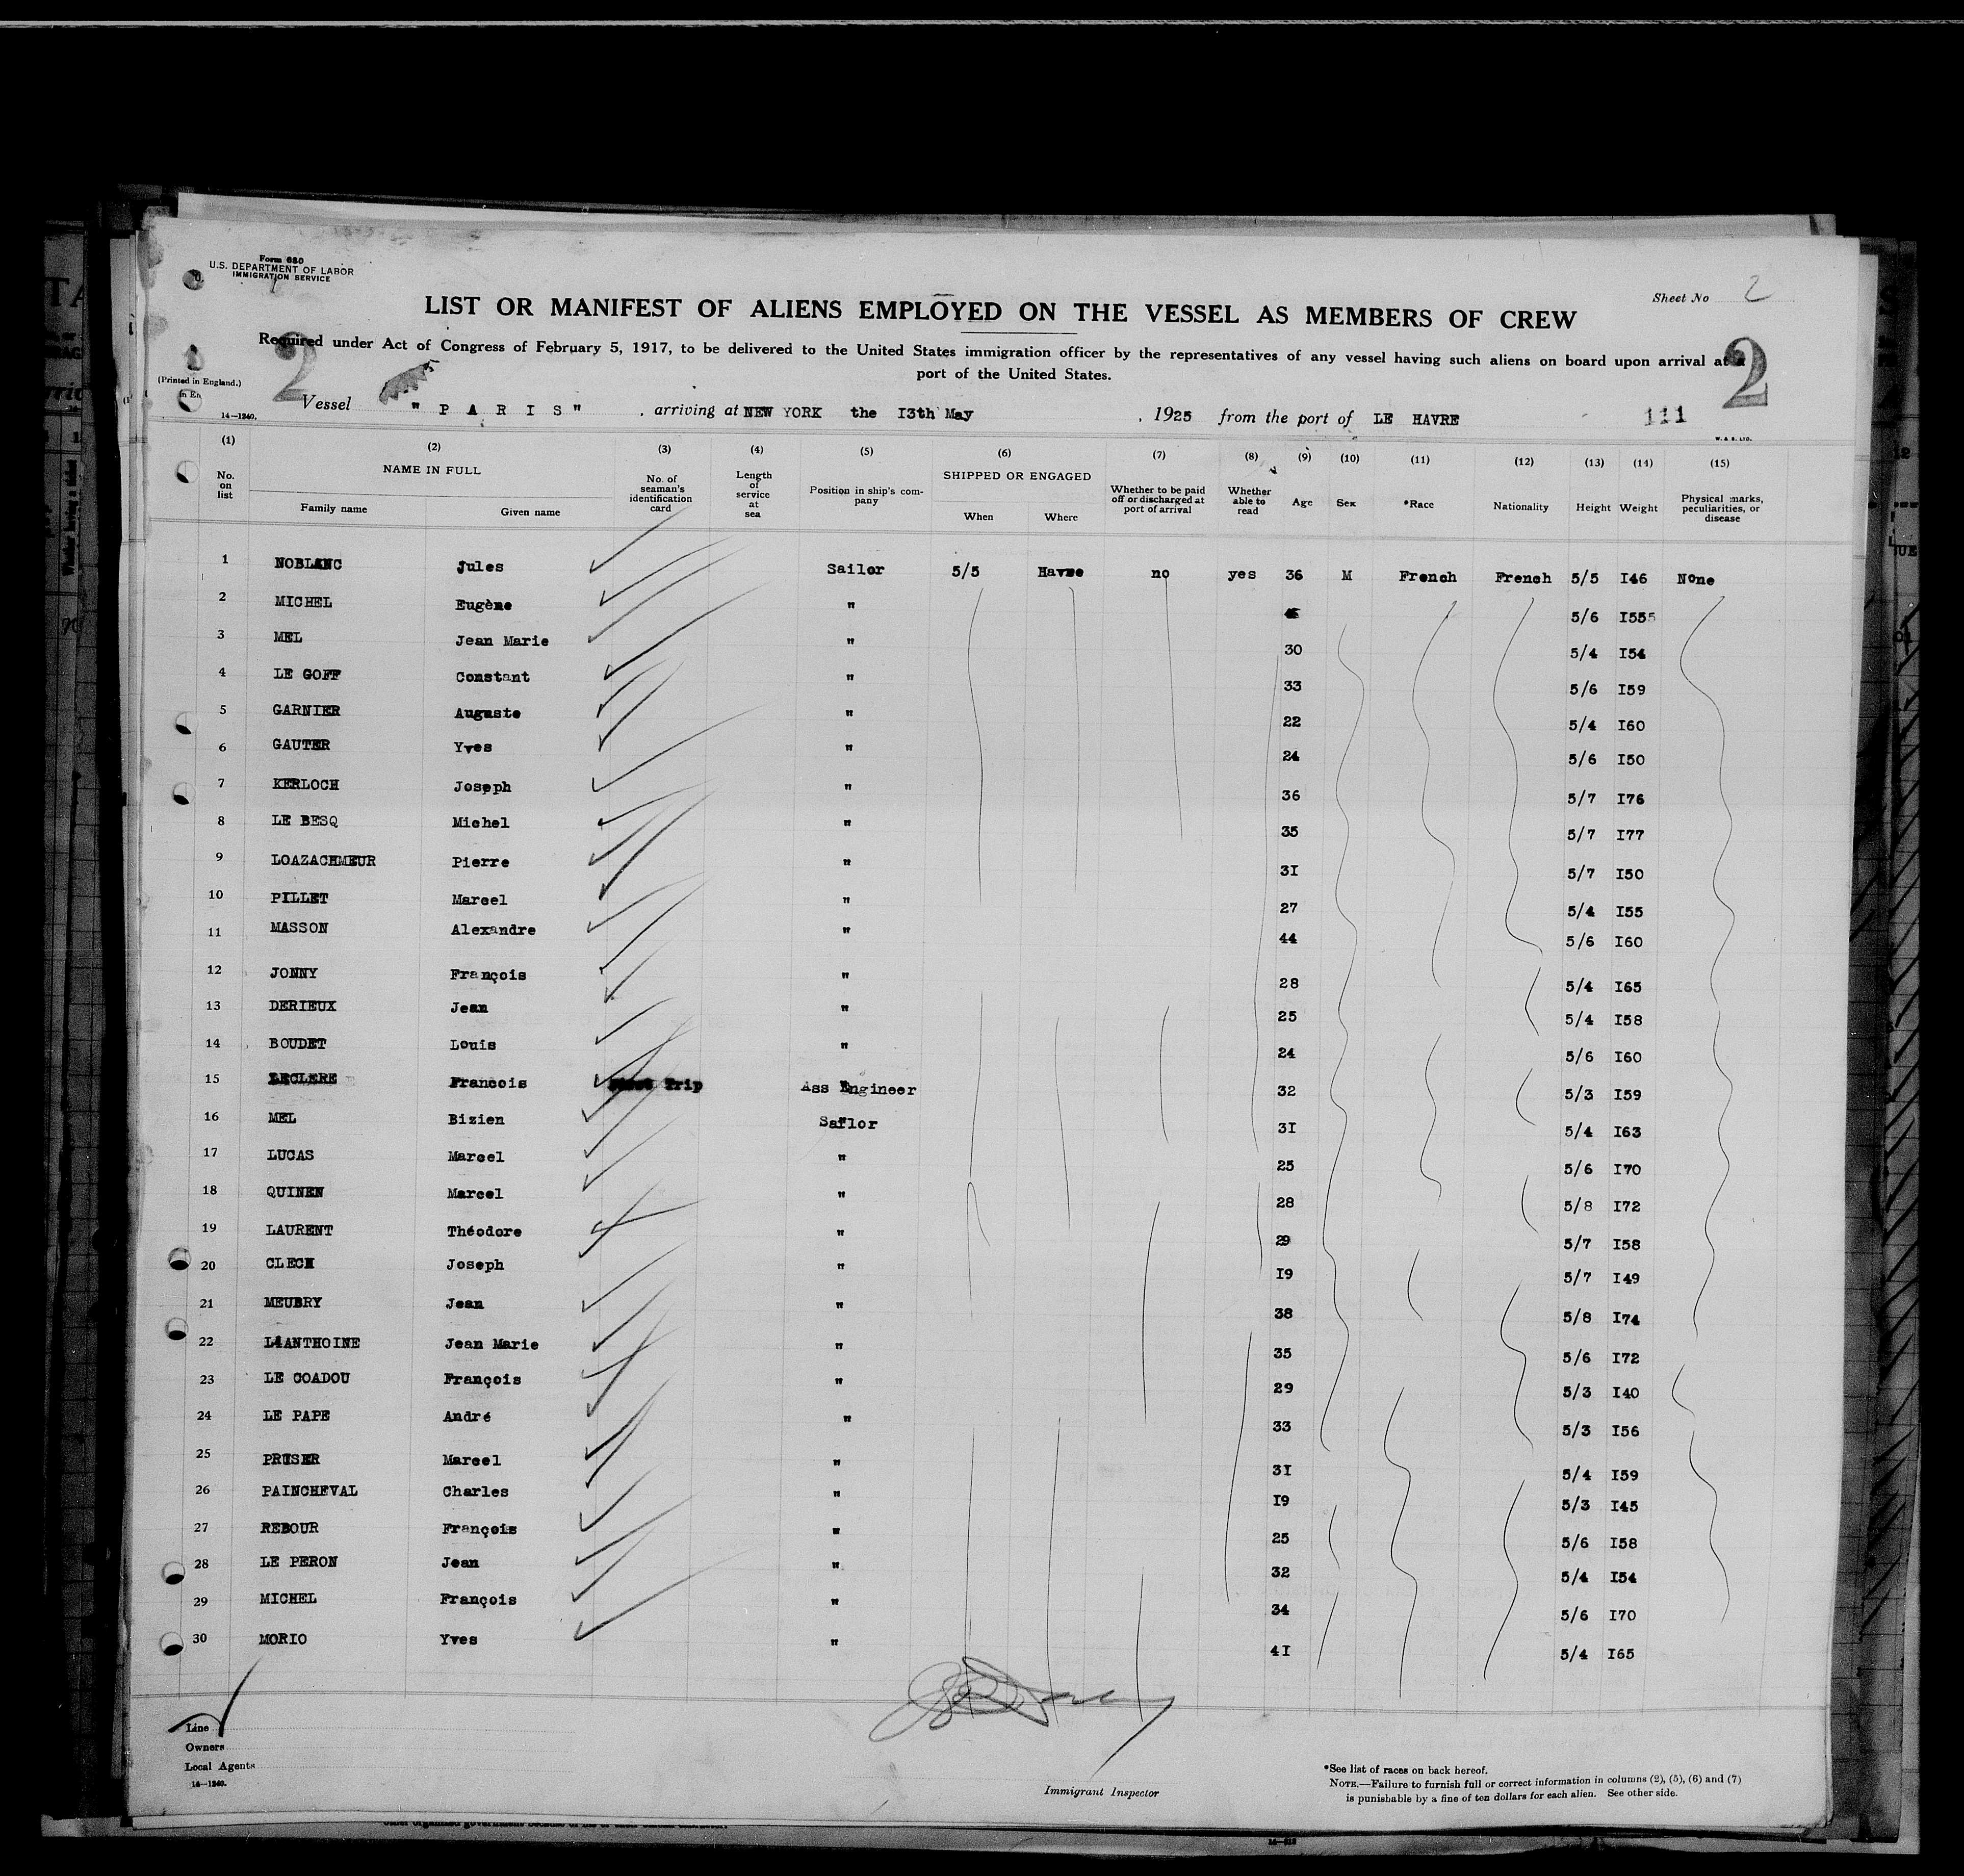 Form 680
U.S. DEPARTMENT OF LABOR
IMMIGRATION SERVICE
Sheet No 2
LIST OR MANIFEST OF ALIENS EMPLOYED ON THE VESSEL AS MEMBERS OF CREW
Required under Act of Congress of February 5, 1917, to be delivered to the United States immigration officer by the representatives of any vessel having such aliens on board upon arrival at a
port of the United States.
2 2
(Printed in England.)
14—1240.
Vessel " P A R I S " , arriving at NEW YORK the I3th May , 1925 from the port of LE HAVRE 111
W. & S. LTD.
(1) (2) (3) (4) (5) (6) (7) (8) (9) (10) (11) (12) (13) (14) (15)
No. on list NAME IN FULL Family name Given name No. of seaman's identification card Length of service at sea Position in ship's company SHIPPED OR ENGAGED When Where Whether to be paid off or discharged at port of arrival Whether able to read Age Sex *Race Nationality Height Weight Physical marks, peculiarities, or disease
1 NOBLANC Jules Sailor 5/5 Havre no yes 36 M French French 5/5 I46 None
2 MICHEL Eugène " 5/6 I555
3 MEL Jean Marie " 30 5/4 I54
4 LE GOFF Constant " 33 5/6 I59
5 GARNIER Auguste " 22 5/4 I60
6 GAUTER Yves " 24 5/6 I50
7 KERLOCH Joseph " 36 5/7 I76
8 LE BESQ Michel " 35 5/7 I77
9 LOAZACHMEUR Pierre " 3I 5/7 I50
10 PILLET Marcel " 27 5/4 I55
11 MASSON Alexandre " 44 5/6 I60
12 JONNY François " 28 5/4 I65
13 DERIEUX Jean " 25 5/4 I58
14 BOUDET Louis " 24 5/6 I60
15 LECLERE Francois First Trip Ass Engineer 32 5/3 I59
16 MEL Bizien Sailor 3I 5/4 I63
17 LUCAS Marcel " 25 5/6 I70
18 QUINEN Marcel " 28 5/8 I72
19 LAURENT Théodore " 29 5/7 I58
20 CLECH Joseph " I9 5/7 I49
21 MEUBRY Jean " 38 5/8 I74
22 LANTHOINE Jean Marie " 35 5/6 I72
23 LE COADOU François " 29 5/3 I40
24 LE PAPE André " 33 5/3 I56
25 PRUSER Marcel " 3I 5/4 I59
26 PAINCHEVAL Charles " I9 5/3 I45
27 REBOUR François " 25 5/6 I58
28 LE PERON Jean " 32 5/4 I54
29 MICHEL François " 34 5/6 I70
30 MORIO Yves " 4I 5/4 I65
Line
Owners
Local Agents
14—1240.
Immigrant Inspector
*See list of races on back hereof.
NOTE.—Failure to furnish full or correct information in columns (2), (5), (6) and (7)
is punishable by a fine of ten dollars for each alien. See other side.